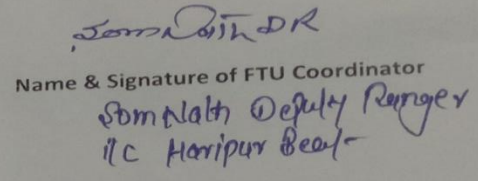 Som Nath DR
Name & Signature of FTU Coordinator
Som Nath Deputy Ranger
i/c Haripur Beat